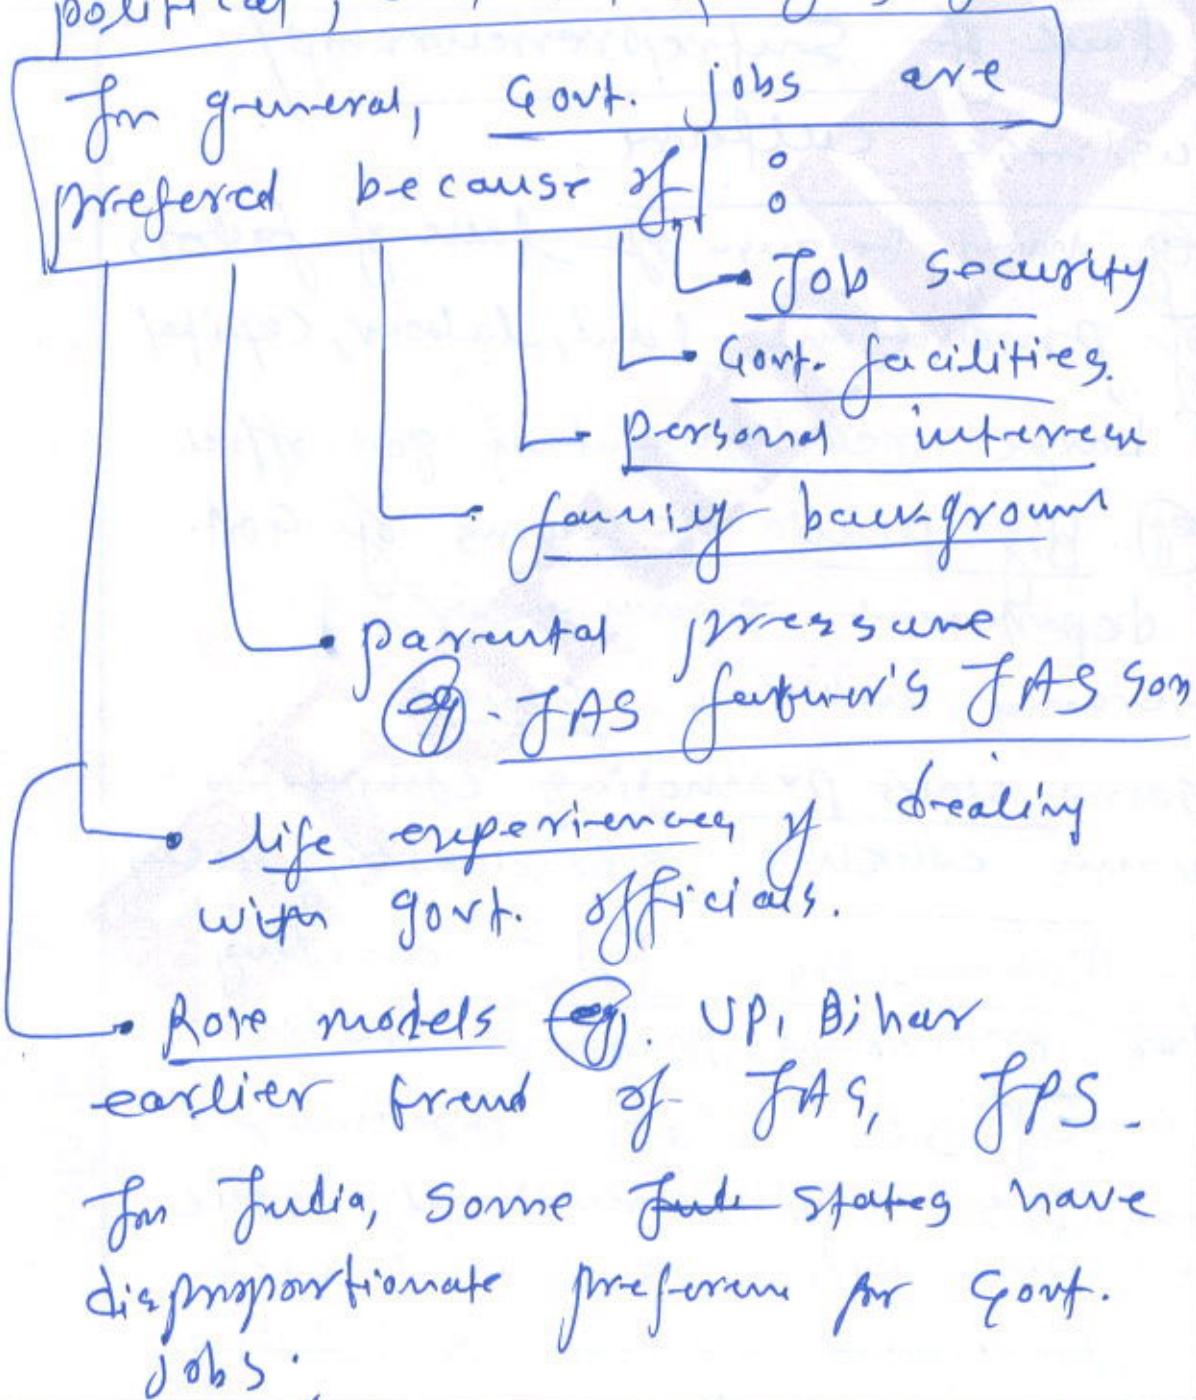 political,
In general, Govt. jobs are
prefered because of :
Job security
Govt. facilities.
personal interest
family background
parental pressure
eg - IAS father's IAS son
life experiences of dealing
with govt. officials.
Role models eg. UP, Bihar
earlier trend of IAS, IPS.
In India, some states have
disproportionate preference for Govt.
jobs.